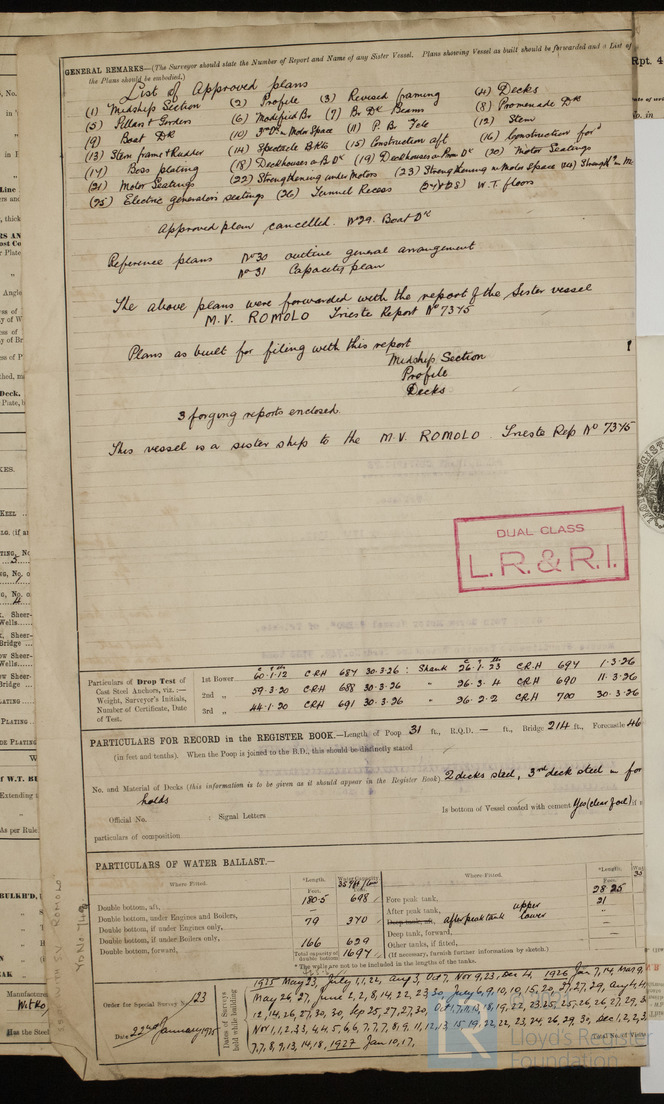 GENERAL REMARKS—(The Surveyor should state the Number of Report and Name of any Sister Vessel. Plans showing Vessel as built should be forwarded and a List of
the Plans should be embodied.)
Rpt. 4
List of Approved plans
(1) Midship Section (2) Profile (3) Revised framing (4) Decks
(5) Pillars & Girders (6) Modified Br (7) Br Dk Beams (8) Promenade Dk
(9) Boat Dk (10) 3rd Dk in Motor Space (11) P. Br Fcle (12) Stem
(13) Stern frame & Rudder (14) Spectacle Bkts (15) Construction aft (16) Construction ford
(17) Boss plating (18) Deckhouses on B. Dk (19) Deckhouses on Prom Dk (20) Motor Seatings
(21) Motor Seatings (22) Strengthening under Motors (23) Strengthening in Motor Space
(25) Electric generators seatings (26) Tunnel Recess W.T. floors
Approved plan cancelled. No 29. Boat Dk
Reference plans No 30 general arrangement
No 31 Capacity plan
The above plans were forwarded with the report of the Sister vessel
M.V. ROMOLO Trieste Report No 7345
Plans as built for filing with this report
Midship Section
Profile
Decks
3 forging reports enclosed.
This vessel is a sister ship to the M.V. ROMOLO. Trieste Rep No 7345
DUAL CLASS
L.R. & R.I.
Particulars of Drop Test of
Cast Steel Anchors, viz.:—
Weight, Surveyor's Initials,
Number of Certificate, Date
of Test.
1st Bower 60.1.12 CRH 687 30.3.26 : Shank 26.1.23 C.R.H 694 1.3.26
2nd „ 59.3.20 CRH 688 30.3.26 „ 26.3.4 CRH 690 11.3.26
3rd „ 44.1.20 CRH 691 30.3.26 „ 26.2.2 CRH 700 30.3.26
PARTICULARS FOR RECORD in the REGISTER BOOK.—Length of Poop 31 ft., R.Q.D. — ft., Bridge 214 ft., Forecastle 46
(in feet and tenths). When the Poop is joined to the B.D., this should be distinctly stated
No. and Material of Decks (this information is to be given as it should appear in the Register Book) 2 decks steel, 3rd deck steel in for
holds
Official No. ; Signal Letters Is bottom of Vessel coated with cement Yes (clear of oil) if
particulars of composition
PARTICULARS OF WATER BALLAST.—
Where Fitted. *Length. Water Capacity Where Fitted. *Length.
Feet. Feet.
Double bottom, aft, 180.5 698 Fore peak tank, 28.25
Double bottom, under Engines and Boilers, 79 370 After peak tank, upper 21
Double bottom, if under Engines only, Deep tank, aft, after peak tank lower —
Double bottom, if under Boilers only, Deep tank, forward, —
Double bottom, forward, 166 629 Other tanks, if fitted,
Total capacity of double bottom 1697 (If necessary, furnish further information by sketch.)
*The wells are not to be included in the lengths of the tanks.
Order for Special Survey No. 123
Date 22nd January 1925
Dates of Surveys
held while building
1925 May 23, July 1, 22, Aug 3, Oct 7, Nov 9, 23, Dec 4, 1926 Jan 7, 14, Mar 9,
May 26, 27, June 2, 2, 8, 14, 22, 23, 30, July 6, 9, 10, 10, 15, 20, 27, 27, 29, Aug 4,
12, 14, 26, 27, 30, 30, Sep 25, 27, 27, 30,
7, 7, 8, 9, 13, 14, 18, 1927 Jan 10, 17,
Total No. of Visits
Lloyd's Register
Foundation